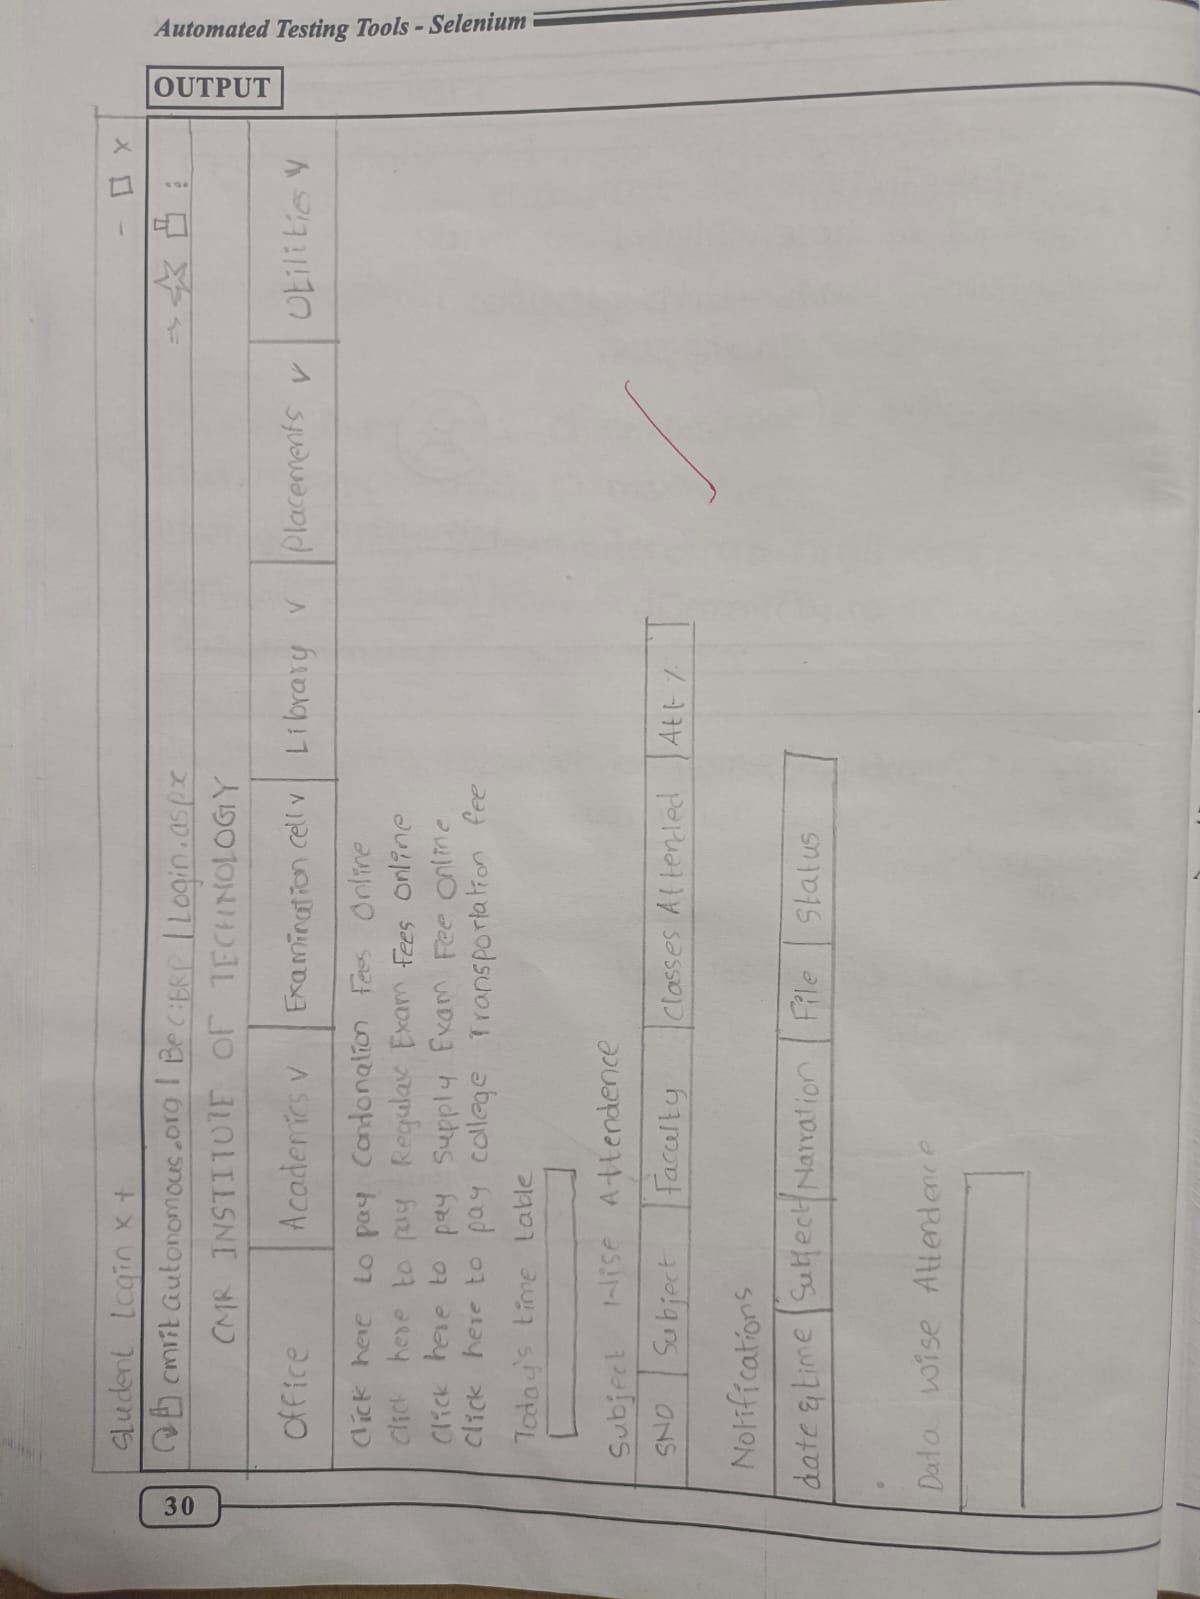 Automated Testing Tools - Selenium
OUTPUT
Student Login x + - x
cmritautonomous.org | BeC:ERP | Login.aspx
CMR INSTITUTE OF TECHNOLOGY
Office Academics v Examination cell v Library v Placements v Utilities v
Click here to pay Condonation Fees Online
Click here to pay Regular Exam Fees online
Click here to pay Supply Exam Fee Online
Click here to pay college Transportation fee
Today's time table
Subject Wise Attendence
SNO Subject Faculty Classes Attended Att %
Notifications
date & time Subject Narration File Status
Data wise Attendence
30